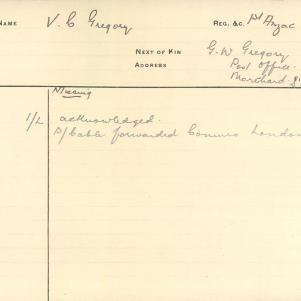 NAME V. C Gregory REG. &C. 1st Anzac
NEXT OF KIN G. W Gregory
ADDRESS Post Office.
Marchard
Missing
1/2 acknowledged.
P/Cable forwarded Commrs London